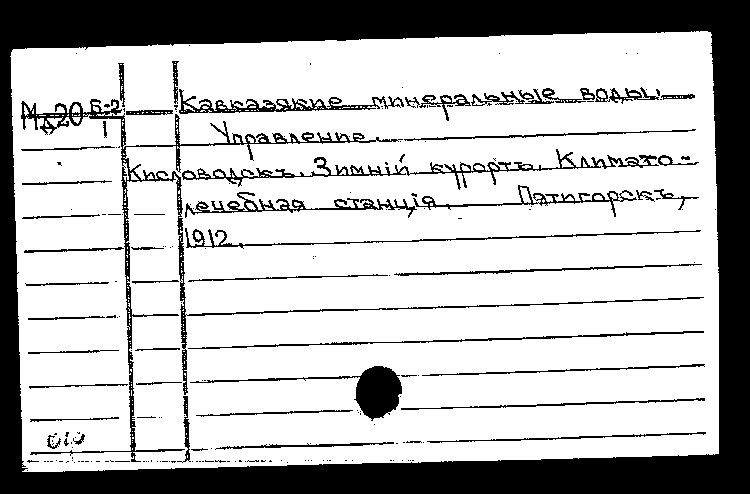 Мд20 Б-2/1 Кавказские минеральные воды.
Управление.
Кисловодскъ. Зимній курортъ. Климато-
лечебная станція. Пятигорскъ,
1912.